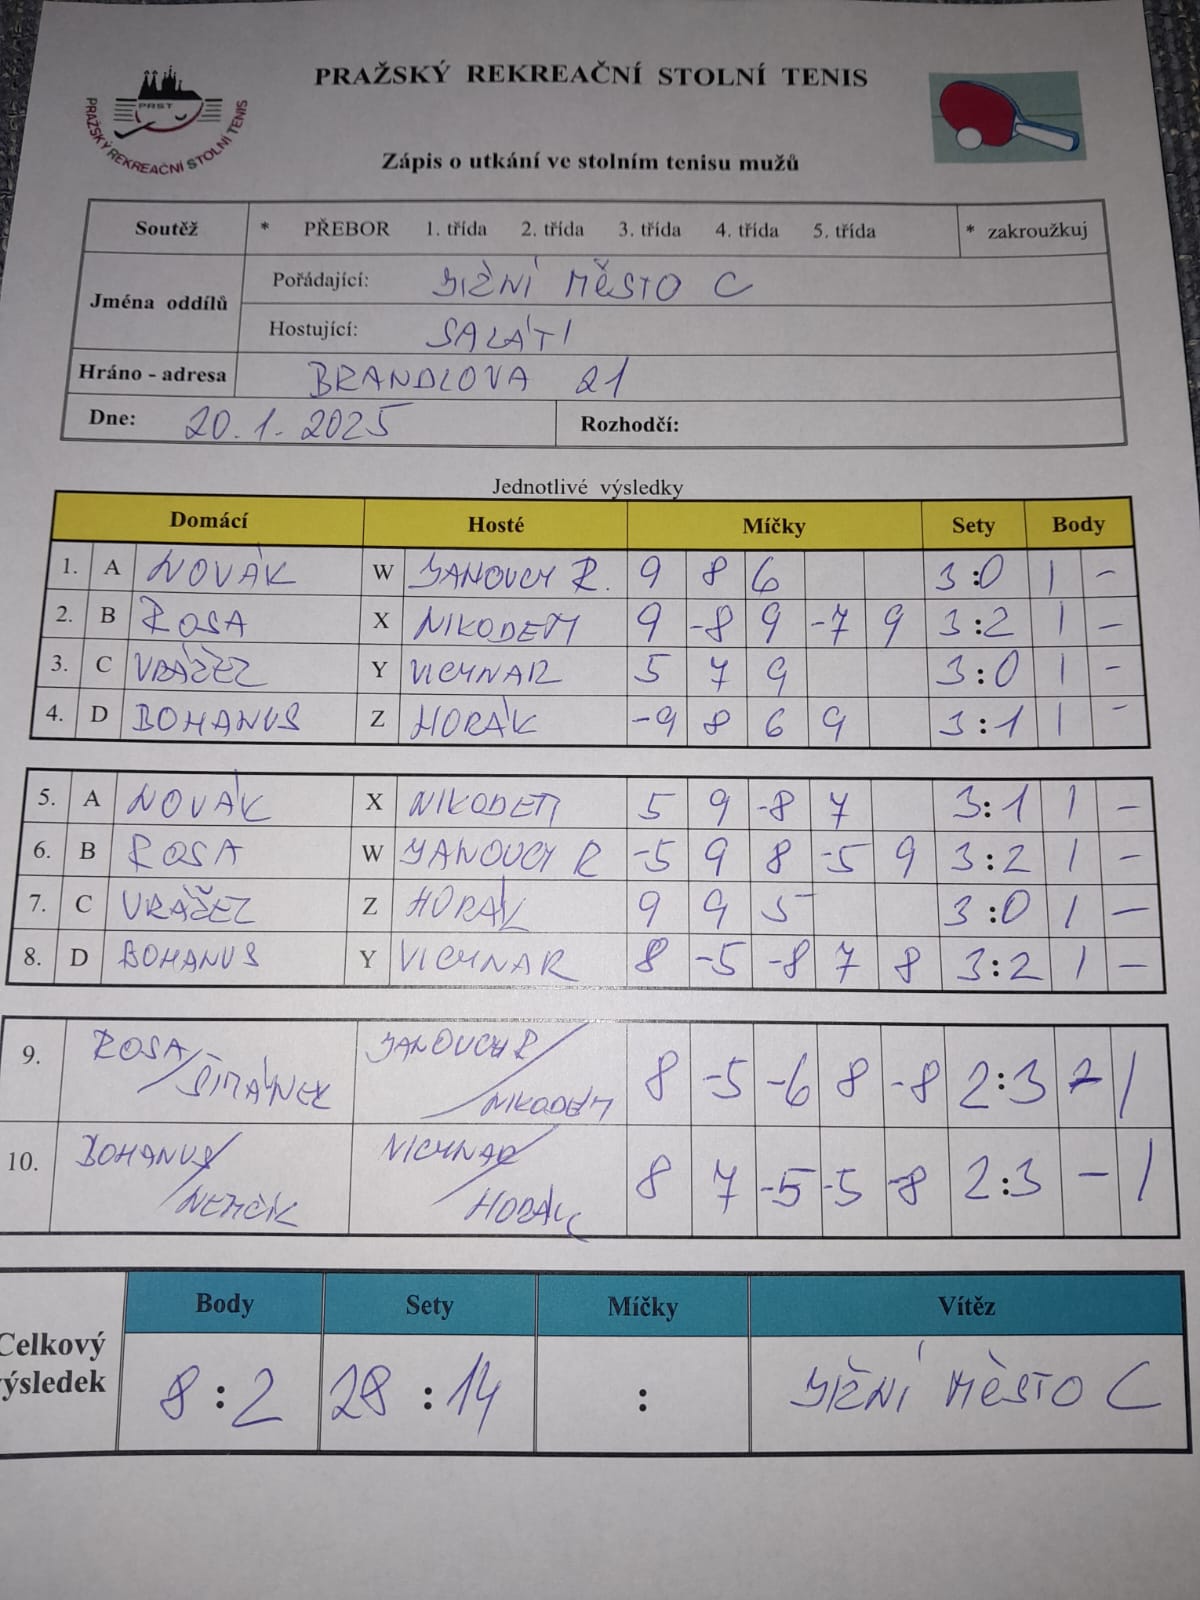 PRAŽSKÝ REKREAČNÍ STOLNÍ TENIS
PRST
PRAŽSKÝ REKREAČNÍ STOLNÍ TENIS
Zápis o utkání ve stolním tenisu mužů
Soutěž * PŘEBOR 1. třída 2. třída 3. třída 4. třída 5. třída * zakroužkuj
Jména oddílů
Pořádající: JIŽNÍ MĚSTO C
Hostující: SALÁTI
Hráno - adresa BRANDLOVA 21
Dne: 20.1.2025 Rozhodčí:
Jednotlivé výsledky
Domácí Hosté Míčky Sety Body
1. A NOVÁK W JANOUCH R. 9 8 6 3:0 1 -
2. B ROSA X NIKODEM 9 -8 9 -7 9 3:2 1 -
3. C VRÁŽEL Y VICHNAR 5 7 9 3:0 1 -
4. D BOHANUS Z HORÁK -9 8 6 9 3:1 1 -
5. A NOVÁK X NIKODEM 5 9 -8 7 3:1 1 -
6. B ROSA W JANOUCH R -5 9 8 -5 9 3:2 1 -
7. C VRÁŽEL Z HORÁK 9 9 5 3:0 1 -
8. D BOHANUS Y VICHNAR 8 -5 -8 7 8 3:2 1 -
9. ROSA/ŠIMÁNEK JANOUCH R/NIKODEM 8 -5 -6 8 -8 2:3 - 1
10. BOHANUS/NEMČÍK VICHNAR/HORÁK 8 7 -5 -5 -8 2:3 - 1
Body Sety Míčky Vítěz
Celkový
výsledek
8:2 28:14 : JIŽNÍ MĚSTO C